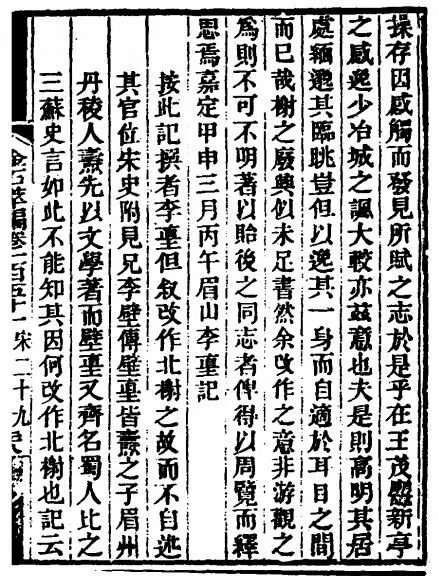 操存因感觸而發見所賦之志於是乎在王茂新亭
之感逸少冶城之諷大較亦茲意也夫是則高明其居
處緬邈其臨眺豈但以逸其一身而自適於耳目之間
而已哉榭之廢興似未足書然余改作之意非游觀之
爲則不可不明著以貽後之同志者俾得以周覽而繹
思焉嘉定甲申三月丙午眉山李𡌴記
按此記撰者李𡌴但敘改作北榭之故而不自述
其官位宋史附見兄李壁傳壁𡌴皆燾之子眉州
丹稜人燾先以文學著而壁𡌴又齊名蜀人比之
三蘇史言如此不能知其因何改作北榭也記云
金石萃編卷一百五十一 宋二十九